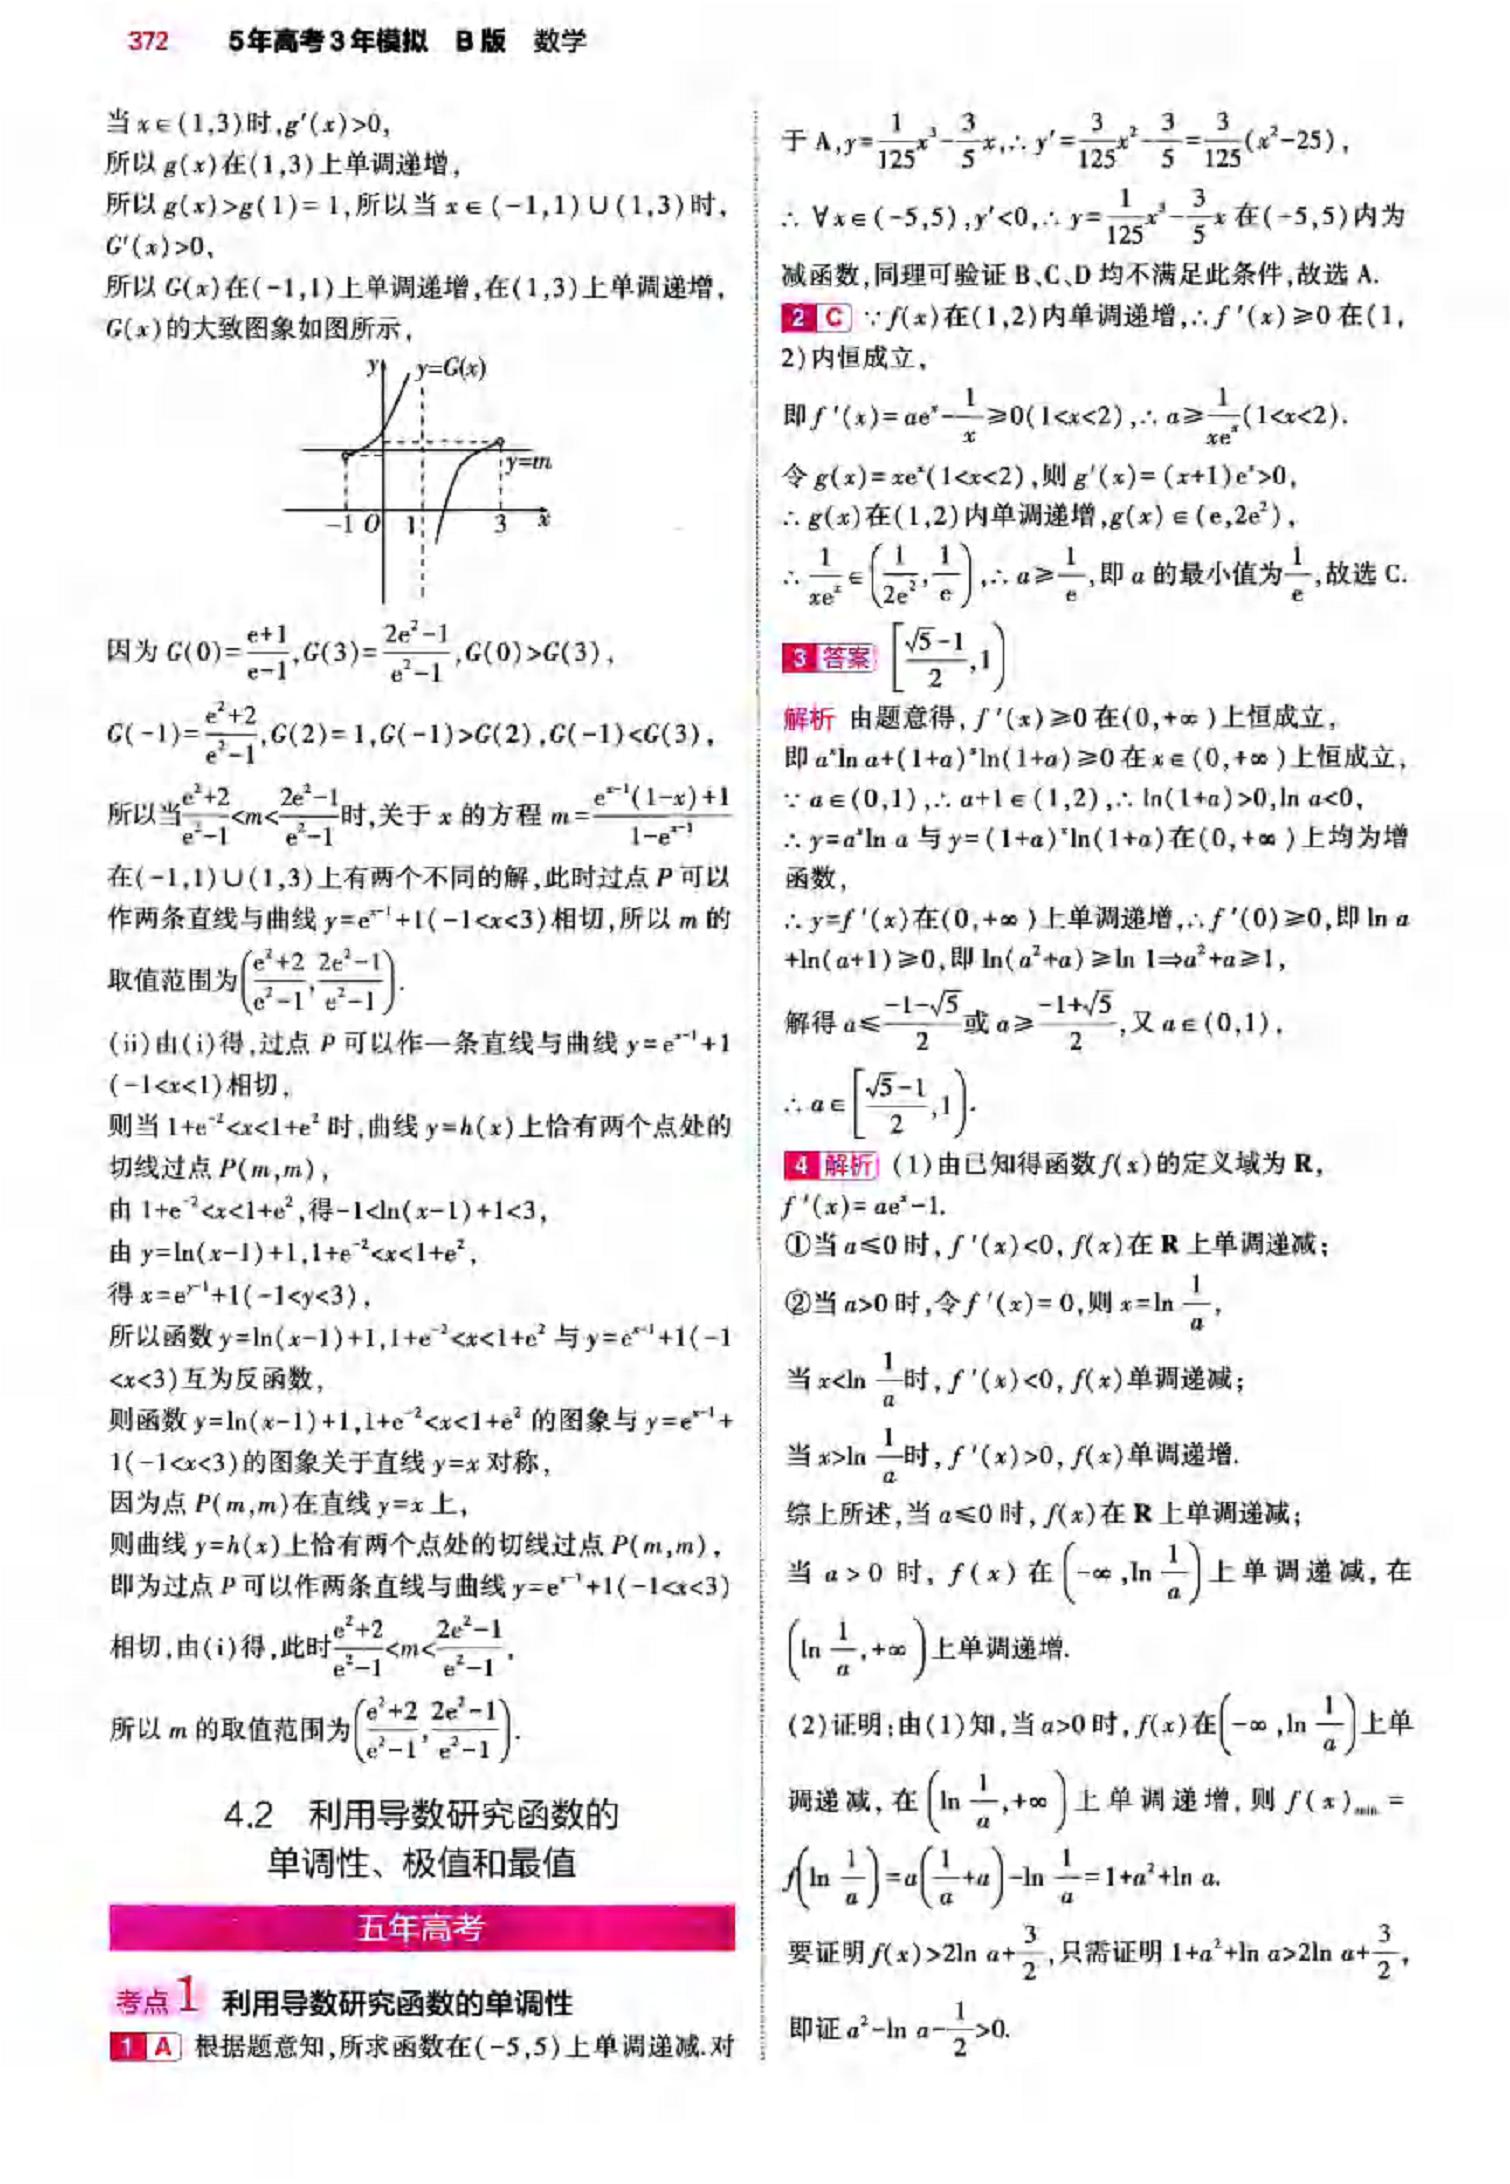 372 5年高考3年模拟 B版 数学
当x∈(1,3)时,g′(x)>0,
所以g(x)在(1,3)上单调递增,
所以g(x)>g(1)=1,所以当x∈(-1,1)∪(1,3)时,
G′(x)>0,
所以G(x)在(-1,1)上单调递增,在(1,3)上单调递增,
G(x)的大致图象如图所示,
y y=G(x)
y=m
-1 O 1 3 x
因为G(0)=(e+1)/(e-1),G(3)=(2e²-1)/(e²-1),G(0)>G(3),
G(-1)=(e²+2)/(e²-1),G(2)=1,G(-1)>G(2),G(-1)<G(3),
所以当(e²+2)/(e²-1)<m<(2e²-1)/(e²-1)时,关于x的方程m=(e^(x-1)(1-x)+1)/(1-e^(x-1))
在(-1,1)∪(1,3)上有两个不同的解,此时过点P可以
作两条直线与曲线y=e^(x-1)+1(-1<x<3)相切,所以m的
取值范围为((e²+2)/(e²-1),(2e²-1)/(e²-1)).
(ii)由(i)得,过点P可以作一条直线与曲线y=e^(x-1)+1
(-1<x<1)相切,
则当1+e^(-2)<x<1+e²时,曲线y=h(x)上恰有两个点处的
切线过点P(m,m),
由1+e^(-2)<x<1+e²,得-1<ln(x-1)+1<3,
由y=ln(x-1)+1,1+e^(-2)<x<1+e²,
得x=e^(y-1)+1(-1<y<3),
所以函数y=ln(x-1)+1,1+e^(-2)<x<1+e²与y=e^(x-1)+1(-1
<x<3)互为反函数,
则函数y=ln(x-1)+1,1+e^(-2)<x<1+e²的图象与y=e^(x-1)+
1(-1<x<3)的图象关于直线y=x对称,
因为点P(m,m)在直线y=x上,
则曲线y=h(x)上恰有两个点处的切线过点P(m,m),
即为过点P可以作两条直线与曲线y=e^(x-1)+1(-1<x<3)
相切,由(i)得,此时(e²+2)/(e²-1)<m<(2e²-1)/(e²-1),
所以m的取值范围为((e²+2)/(e²-1),(2e²-1)/(e²-1)).
4.2 利用导数研究函数的
单调性、极值和最值
五年高考
考点1 利用导数研究函数的单调性
1 A 根据题意知,所求函数在(-5,5)上单调递减.对
于A,y=(1/125)x³-(3/5)x,∴y′=(3/125)x²-3/5=(3/125)(x²-25),
∴∀x∈(-5,5),y′<0,∴y=(1/125)x³-(3/5)x在(-5,5)内为
减函数,同理可验证B、C、D均不满足此条件,故选A.
2 C ∵f(x)在(1,2)内单调递增,∴f′(x)≥0在(1,
2)内恒成立,
即f′(x)=ae^x-1/x≥0(1<x<2),∴a≥1/(xe^x)(1<x<2).
令g(x)=xe^x(1<x<2),则g′(x)=(x+1)e^x>0,
∴g(x)在(1,2)内单调递增,g(x)∈(e,2e²),
∴1/(xe^x)∈(1/(2e²),1/e),∴a≥1/e,即a的最小值为1/e,故选C.
3 答案 [(√5-1)/2,1)
解析 由题意得,f′(x)≥0在(0,+∞)上恒成立,
即a^x ln a+(1+a)^x ln(1+a)≥0在x∈(0,+∞)上恒成立,
∵a∈(0,1),∴a+1∈(1,2),∴ln(1+a)>0,ln a<0,
∴y=a^x ln a与y=(1+a)^x ln(1+a)在(0,+∞)上均为增
函数,
∴y=f′(x)在(0,+∞)上单调递增,∴f′(0)≥0,即ln a
+ln(a+1)≥0,即ln(a²+a)≥ln 1⇒a²+a≥1,
解得a≤(-1-√5)/2或a≥(-1+√5)/2,又a∈(0,1),
∴a∈[(√5-1)/2,1).
4 解析 (1)由已知得函数f(x)的定义域为R,
f′(x)=ae^x-1.
①当a≤0时,f′(x)<0,f(x)在R上单调递减;
②当a>0时,令f′(x)=0,则x=ln 1/a,
当x<ln 1/a时,f′(x)<0,f(x)单调递减;
当x>ln 1/a时,f′(x)>0,f(x)单调递增.
综上所述,当a≤0时,f(x)在R上单调递减;
当a>0时,f(x)在(-∞,ln 1/a)上单调递减,在
(ln 1/a,+∞)上单调递增.
(2)证明:由(1)知,当a>0时,f(x)在(-∞,ln 1/a)上单
调递减,在(ln 1/a,+∞)上单调递增,则f(x)min=
f(ln 1/a)=a(1/a+a)-ln 1/a=1+a²+ln a.
要证明f(x)>2ln a+3/2,只需证明1+a²+ln a>2ln a+3/2,
即证a²-ln a-1/2>0.